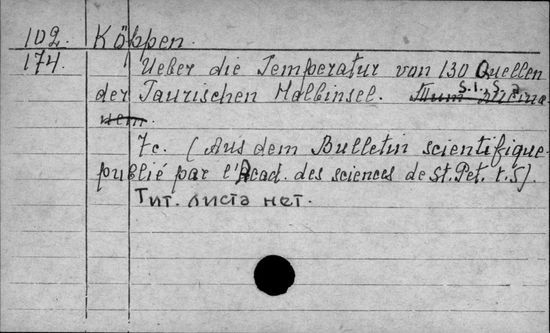 102. Köppen.
174. Ueber die Temperatur von 130 Quellen
der Taurischen Halbinsel. S.l., S.a.
7c. (Aus dem Bulletin scientifique
publié par l'Acad. des sciences de St. Pet. t. 5).
Тит. листа нет.